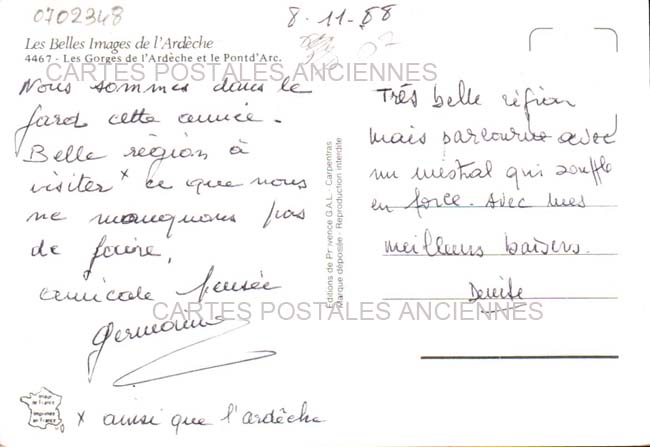 0702348
8-11-88
Les Belles Images de l'Ardèche
4467 - Les Gorges de l'Ardèche et le Pont d'Arc.
CARTES POSTALES ANCIENNES
Nous sommes dans le
gard cette année.
Belle région à
visiter x ce que nous
ne manquons pas
de faire,
amicale pensée
Germaine
x ainsi que l'ardèche
Editions de Provence G.A.L. - Carpentras
Marque déposée - Reproduction interdite
Très belle région
mais parcourue avec
un mistral qui souffle
en force. Avec mes
meilleurs baisers.
Denise
CARTES POSTALES ANCIENNES
imprimée
en france